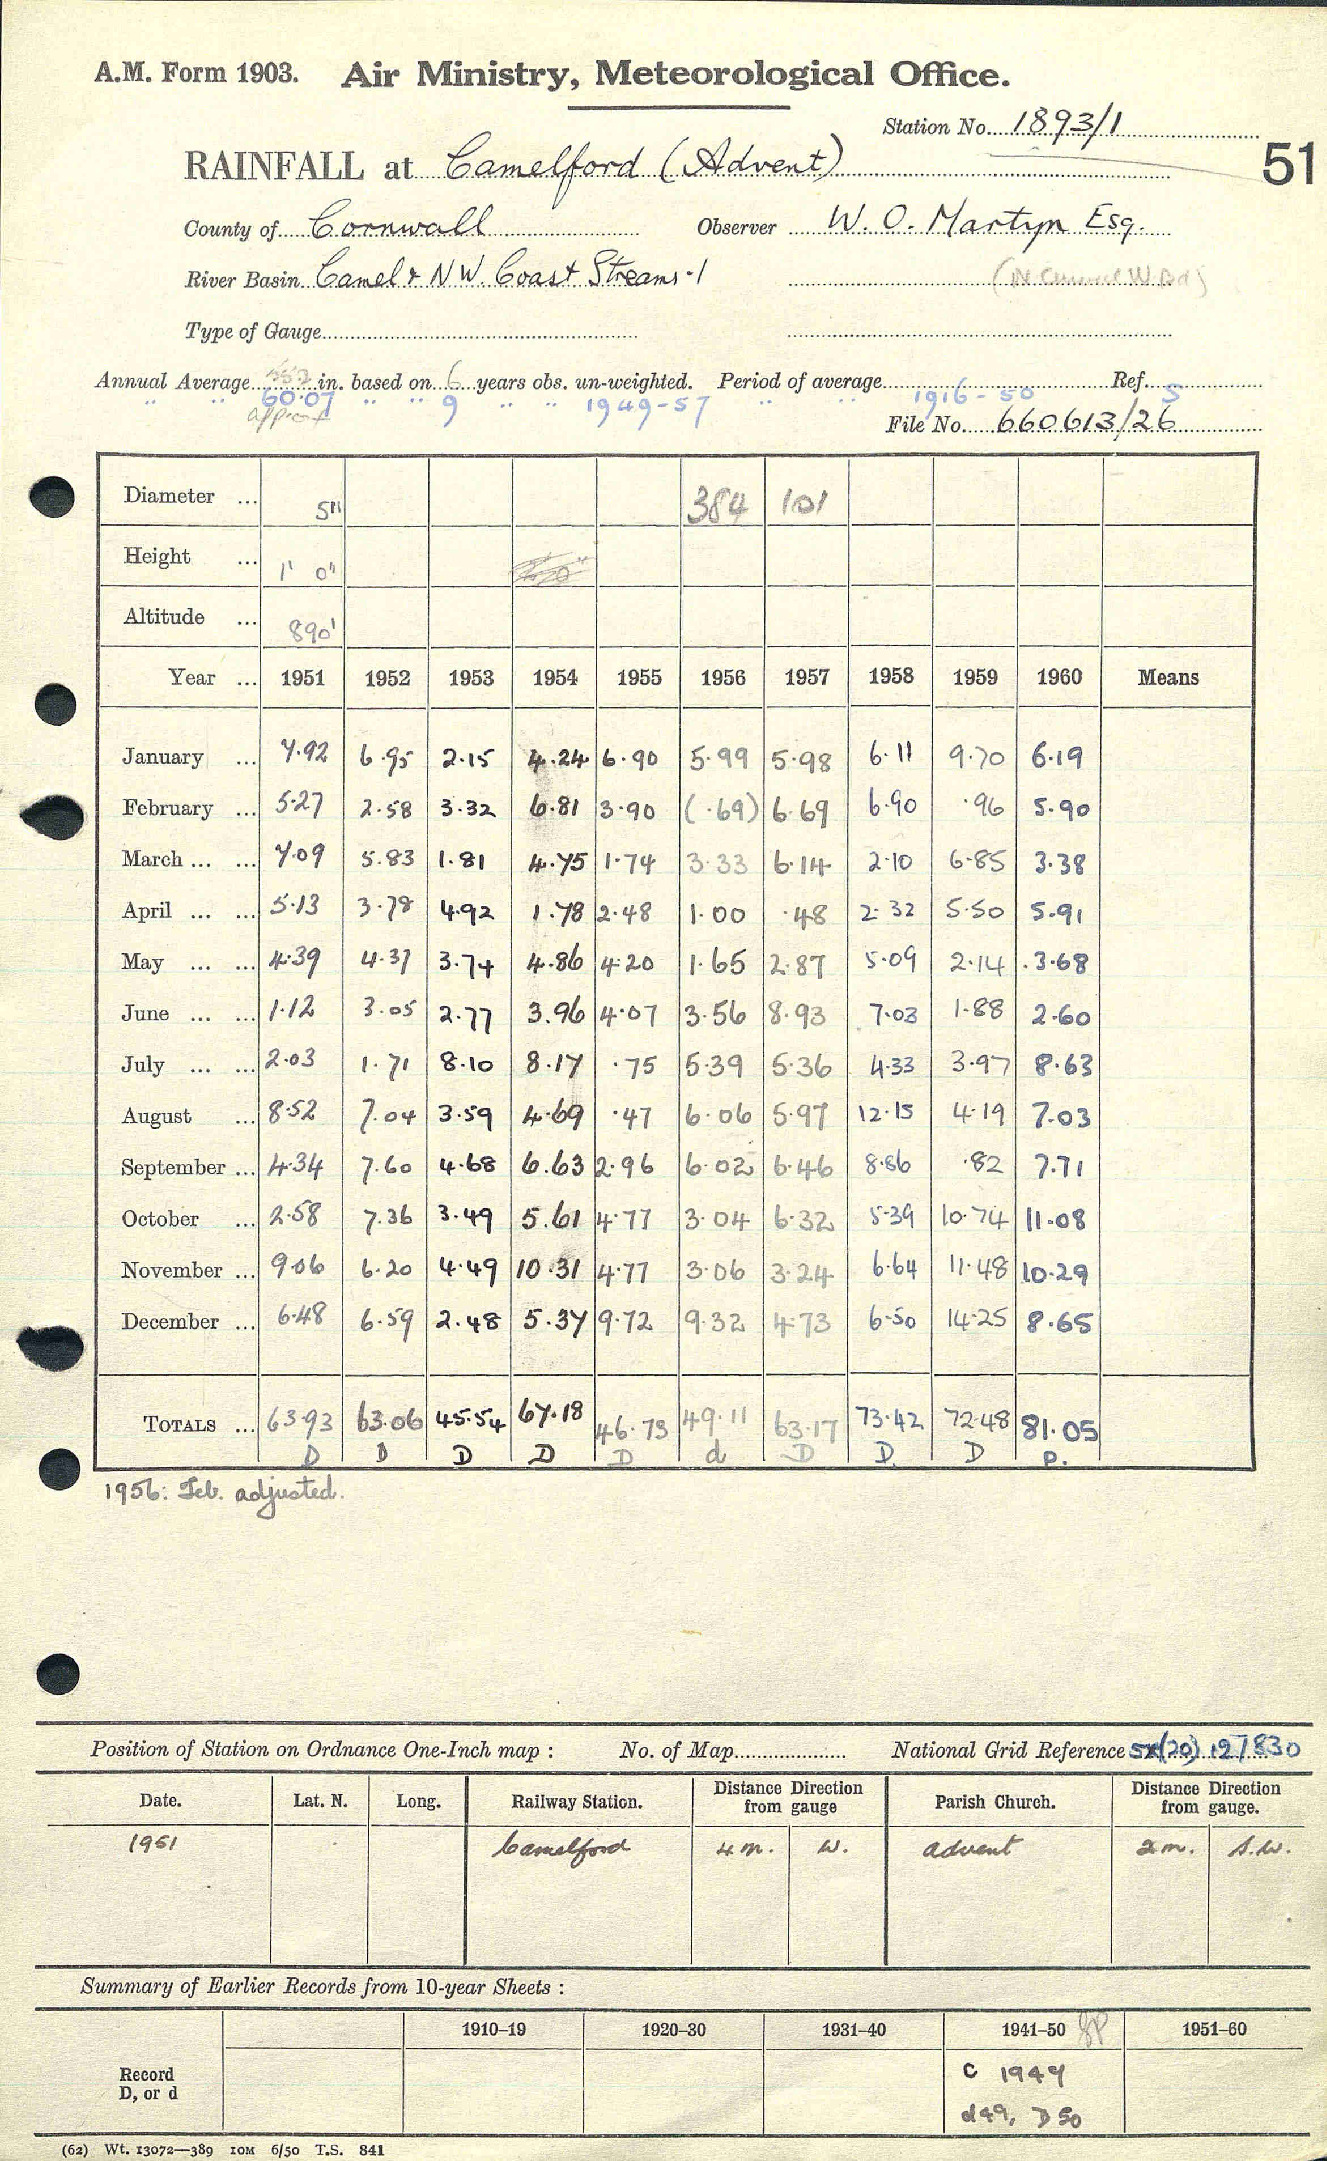 A.M. Form 1903. Air Ministry, Meteorological Office.
Station No. 1893/1
51
RAINFALL at Camelford (Advent)
County of Cornwall Observer W. O. Martyn Esq.
River Basin Camel & N W. Coast Streams-1
Type of Gauge
Annual Average in. based on 6 years obs. un-weighted. Period of average Ref.
" " 60.07 " " 9 " " 1949-57 " " 1916-50 S
approx File No. 660613/26
Diameter ... 5" 384 101
Height ... 1' 0"
Altitude ... 890'
Year ... 1951 1952 1953 1954 1955 1956 1957 1958 1959 1960 Means
January ... 7.92 6.95 2.15 4.24 6.90 5.99 5.98 6.11 9.70 6.19
February ... 5.27 2.58 3.32 6.81 3.90 (.69) 6.69 6.90 .96 5.90
March ... ... 7.09 5.83 1.81 4.75 1.74 3.33 6.14 2.10 6.85 3.38
April ... ... 5.13 3.78 4.92 1.78 2.48 1.00 .48 2.32 5.50 5.91
May ... ... 4.39 4.37 3.74 4.86 4.20 1.65 2.87 5.09 2.14 3.68
June ... ... 1.12 3.05 2.77 3.96 4.07 3.56 8.93 7.03 1.88 2.60
July ... ... 2.03 1.71 8.10 8.17 .75 5.39 5.36 4.33 3.97 8.63
August ... 8.52 7.04 3.59 4.69 .47 6.06 5.97 12.15 4.19 7.03
September ... 4.34 7.60 4.68 6.63 2.96 6.02 6.46 8.86 .82 7.71
October ... 2.58 7.36 3.49 5.61 4.77 3.04 6.32 5.39 10.74 11.08
November ... 9.06 6.20 4.49 10.31 4.77 3.06 3.24 6.64 11.48 10.29
December ... 6.48 6.59 2.48 5.37 9.72 9.32 4.73 6.50 14.25 8.65
TOTALS ... 63.93 63.06 45.54 67.18 46.73 49.11 63.17 73.42 72.48 81.05
D D D D D d D D D P.
1956: Feb. adjusted.
Position of Station on Ordnance One-Inch map : No. of Map National Grid Reference SX(20) 127830
Date. Lat. N. Long. Railway Station. Distance Direction from gauge Parish Church. Distance Direction from gauge.
1951 Camelford 4 m. W. Advent 2 m. S.W.
Summary of Earlier Records from 10-year Sheets :
1910–19 1920–30 1931–40 1941–50 1951–60
Record D, or d
C 1947
d 49, D 50
(62) Wt. 13072—389 10M 6/50 T.S. 841